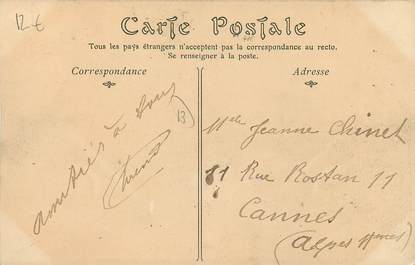 12 €
Carte Postale
Tous les pays étrangers n'acceptent pas la correspondance au recto.
Se renseigner à la poste.
Correspondance
Adresse
amitiés à tous
13
Mlle Jeanne Chinet
11 Rue Rostan 11
Cannes
(Alpes Mmes)